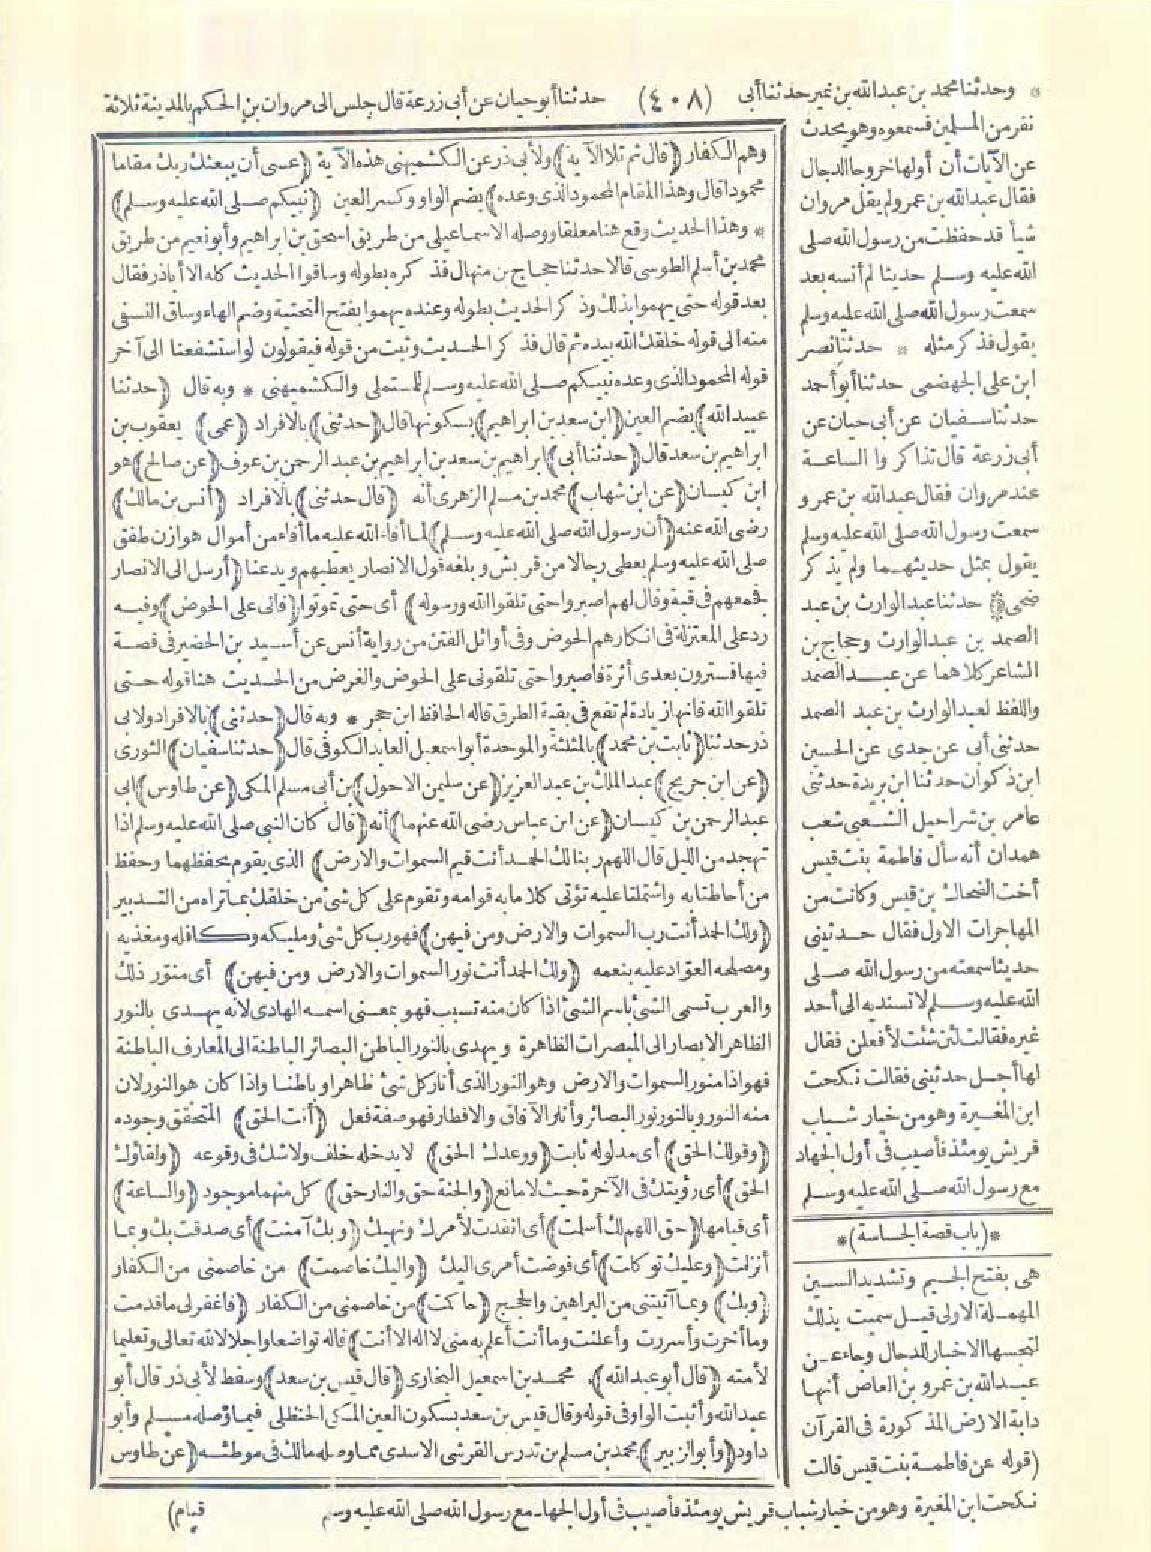 * وحدثنا محمد بن عبد الله بن نمير حدثنا أبى (٤٠٨) حدثنا أبو حيان عن أبى زرعة قال جلس الى مروان بن الحكم بالمدينة ثلاثة
نفر من المسلمين فسمعوه وهو يحدث
عن الآيات أن أولها خروجا الدجال
فقال عبد الله بن عمرو لم يقل مروان
شيأ قد حفظت من رسول الله صلى
الله عليه وسلم حديثا لم أنسه بعد
سمعت رسول الله صلى الله عليه وسلم
يقول فذكر مثله * حدثنا نصر
ابن على الجهضمى حدثنا أبو أحمد
حدثنا سفيان عن أبى حيان عن
أبى زرعة قال تذاكروا الساعة
عند مروان فقال عبد الله بن عمرو
سمعت رسول الله صلى الله عليه وسلم
يقول بمثل حديثهما ولم يذكر
ضحى * حدثنا عبد الوارث بن عبد
الصمد بن عبد الوارث وحجاج بن
الشاعر كلاهما عن عبد الصمد
واللفظ لعبد الوارث بن عبد الصمد
حدثنى أبى عن جدى عن الحسين
ابن ذكوان حدثنا ابن بريدة حدثنى
عامر بن شراحيل الشعبى شعب
همدان أنه سأل فاطمة بنت قيس
أخت الضحاك بن قيس وكانت من
المهاجرات الاول فقال حدثينى
حديثا سمعته من رسول الله صلى
الله عليه وسلم لا تسنديه الى أحد
غيره فقالت لئن شئت لأفعلن فقال
لها أجل حدثينى فقالت نكحت
ابن المغيرة وهو من خيار شباب
قريش يومئذ فأصيب فى أول الجهاد
مع رسول الله صلى الله عليه وسلم
*(باب قصة الجساسة)*
هى بفتح الجيم وتشديد السين
المهملة الاولى قيل سميت بذلك
لتجسسها الاخبار للدجال وجاء عن
عبد الله بن عمرو بن العاص أنها
دابة الارض المذكورة فى القرآن
(قوله عن فاطمة بنت قيس قالت
نكحت ابن المغيرة وهو من خيار شباب قريش يومئذ فأصيب فى أول الجهاد مع رسول الله صلى الله عليه وسلم
وهم الكفار (قال ثم تلا الآية) ولأبى ذر عن الكشميهنى هذه الآية (عسى أن يبعثك ربك مقاما
محمودا قال وهذا المقام المحمود الذى وعده) بضم الواو وكسر العين (نبيكم صلى الله عليه وسلم)
* وهذا الحديث وقع هنا معلقا ووصله الاسماعيلى من طريق اسحق بن ابراهيم وأبو نعيم من طريق
محمد بن أسلم الطوسى قالا حدثنا حجاج بن منهال فذكره بطوله وساقوا الحديث كله الا أبا ذر فقال
بعد قوله حتى يهموا بذلك وذكر الحديث بطوله وعنده يهموا بفتح التحتية وضم الهاء وساق النسفى
منه الى قوله خلقك الله بيده ثم قال فذكر الحديث وثبت من قوله فيقولون لو استشفعنا الى آخر
قوله المحمود الذى وعده نبيكم صلى الله عليه وسلم للمستملى والكشميهنى * وبه قال (حدثنا
عبيد الله) بضم العين (ابن سعد بن ابراهيم) بسكونها قال (حدثنى) بالافراد (عمى) يعقوب بن
ابراهيم بن سعد قال (حدثنا أبى) ابراهيم بن سعد بن ابراهيم بن عبد الرحمن بن عوف (عن صالح) هو
ابن كيسان (عن ابن شهاب) محمد بن مسلم الزهرى أنه (قال حدثنى) بالافراد (أنس بن مالك)
رضى الله عنه (أن رسول الله صلى الله عليه وسلم) لما أفاء الله عليه ما أفاء من أموال هوازن طفق
صلى الله عليه وسلم يعطى رجالا من قريش وبلغه قول الانصار يعطيهم ويدعنا (أرسل الى الانصار
فجمعهم فى قبة وقال لهم اصبروا حتى تلقوا الله ورسوله) أى حتى تموتوا (فانى على الحوض) وفيه
رد على المعتزلة فى انكارهم الحوض وفى أوائل الفتن من رواية أنس عن أسيد بن الحضير فى قصة
فيها فسترون بعدى أثرة فاصبروا حتى تلقونى على الحوض والغرض من الحديث هنا قوله حتى
تلقوا الله فانها زيادة لم تقع فى بقية الطرق قاله الحافظ ابن حجر * وبه قال (حدثنى) بالافراد ولابى
ذر حدثنا (ثابت بن محمد) بالمثلثة والموحدة أبو اسمعيل العابد الكوفى قال (حدثنا سفيان) الثورى
(عن ابن جريج) عبد الملك بن عبد العزيز (عن سليمن الاحول) بن أبى مسلم المكى (عن طاوس) ابى
عبد الرحمن بن كيسان (عن ابن عباس رضى الله عنهما) أنه (قال كان النبى صلى الله عليه وسلم اذا
تهجد من الليل قال اللهم ربنا لك الحمد أنت قيم السموات والارض) الذى يقوم بحفظهما وحفظ
من أحاطتا به واشتملتا عليه تؤتى كلا ما به قوامه وتقوم على كل شئ من خلقك بما تراه من التدبير
(ولك الحمد أنت رب السموات والارض ومن فيهن) فهو رب كل شئ ومليكه وكافله ومغذيه
ومصلحه العوّاد عليه بنعمه (ولك الحمد أنت نور السموات والارض ومن فيهن) أى منوّر ذلك
والعرب تسمى الشئ باسم الشئ اذا كان منه تسبب فهو بمعنى اسمه الهادى لانه يهدى بالنور
الظاهر الابصار الى المبصرات الظاهرة ويهدى بالنور الباطن البصائر الباطنة الى المعارف الباطنة
فهو اذا منور السموات والارض وهو النور الذى أنار كل شئ ظاهرا وباطنا واذا كان هو النور لان
منه النور وبالنور نور البصائر وأنار الآفاق والاقطار فهو صفة فعل (أنت الحق) المتحقق وجوده
(وقولك الحق) أى مدلوله ثابت (ووعدك الحق) لا يدخله خلف ولا شك فى وقوعه (ولقاؤك
الحق) أى رؤيتك فى الآخرة حيث لا مانع (والجنة حق والنار حق) كل منهما موجود (والساعة)
أى قيامها (حق اللهم لك أسلمت) أى انقدت لأمرك ونهيك (وبك آمنت) أى صدقت بك وبما
أنزلت (وعليك توكلت) أى فوضت أمرى اليك (واليك خاصمت) من خاصمنى من الكفار
(وبك) وبما آتيتنى من البراهين والحجج (حاكمت) من خاصمنى من الكفار (فاغفر لى ما قدمت
وما أخرت وأسررت وأعلنت وما أنت أعلم به منى لا اله الا أنت) قاله تواضعا واجلالا لله تعالى وتعليما
لأمته (قال أبو عبد الله) محمد بن اسمعيل البخارى (قال قيس بن سعد) وسقط لأبى ذر قال أبو
عبد الله وأثبت الواو فى قوله وقال قيس بن سعد بسكون العين المكى الحنظلى فيما وصله مسلم وأبو
داود (وأبو الزبير) محمد بن مسلم بن تدرس القرشى الاسدى مما وصله مالك فى موطئه (عن طاوس
قيام)